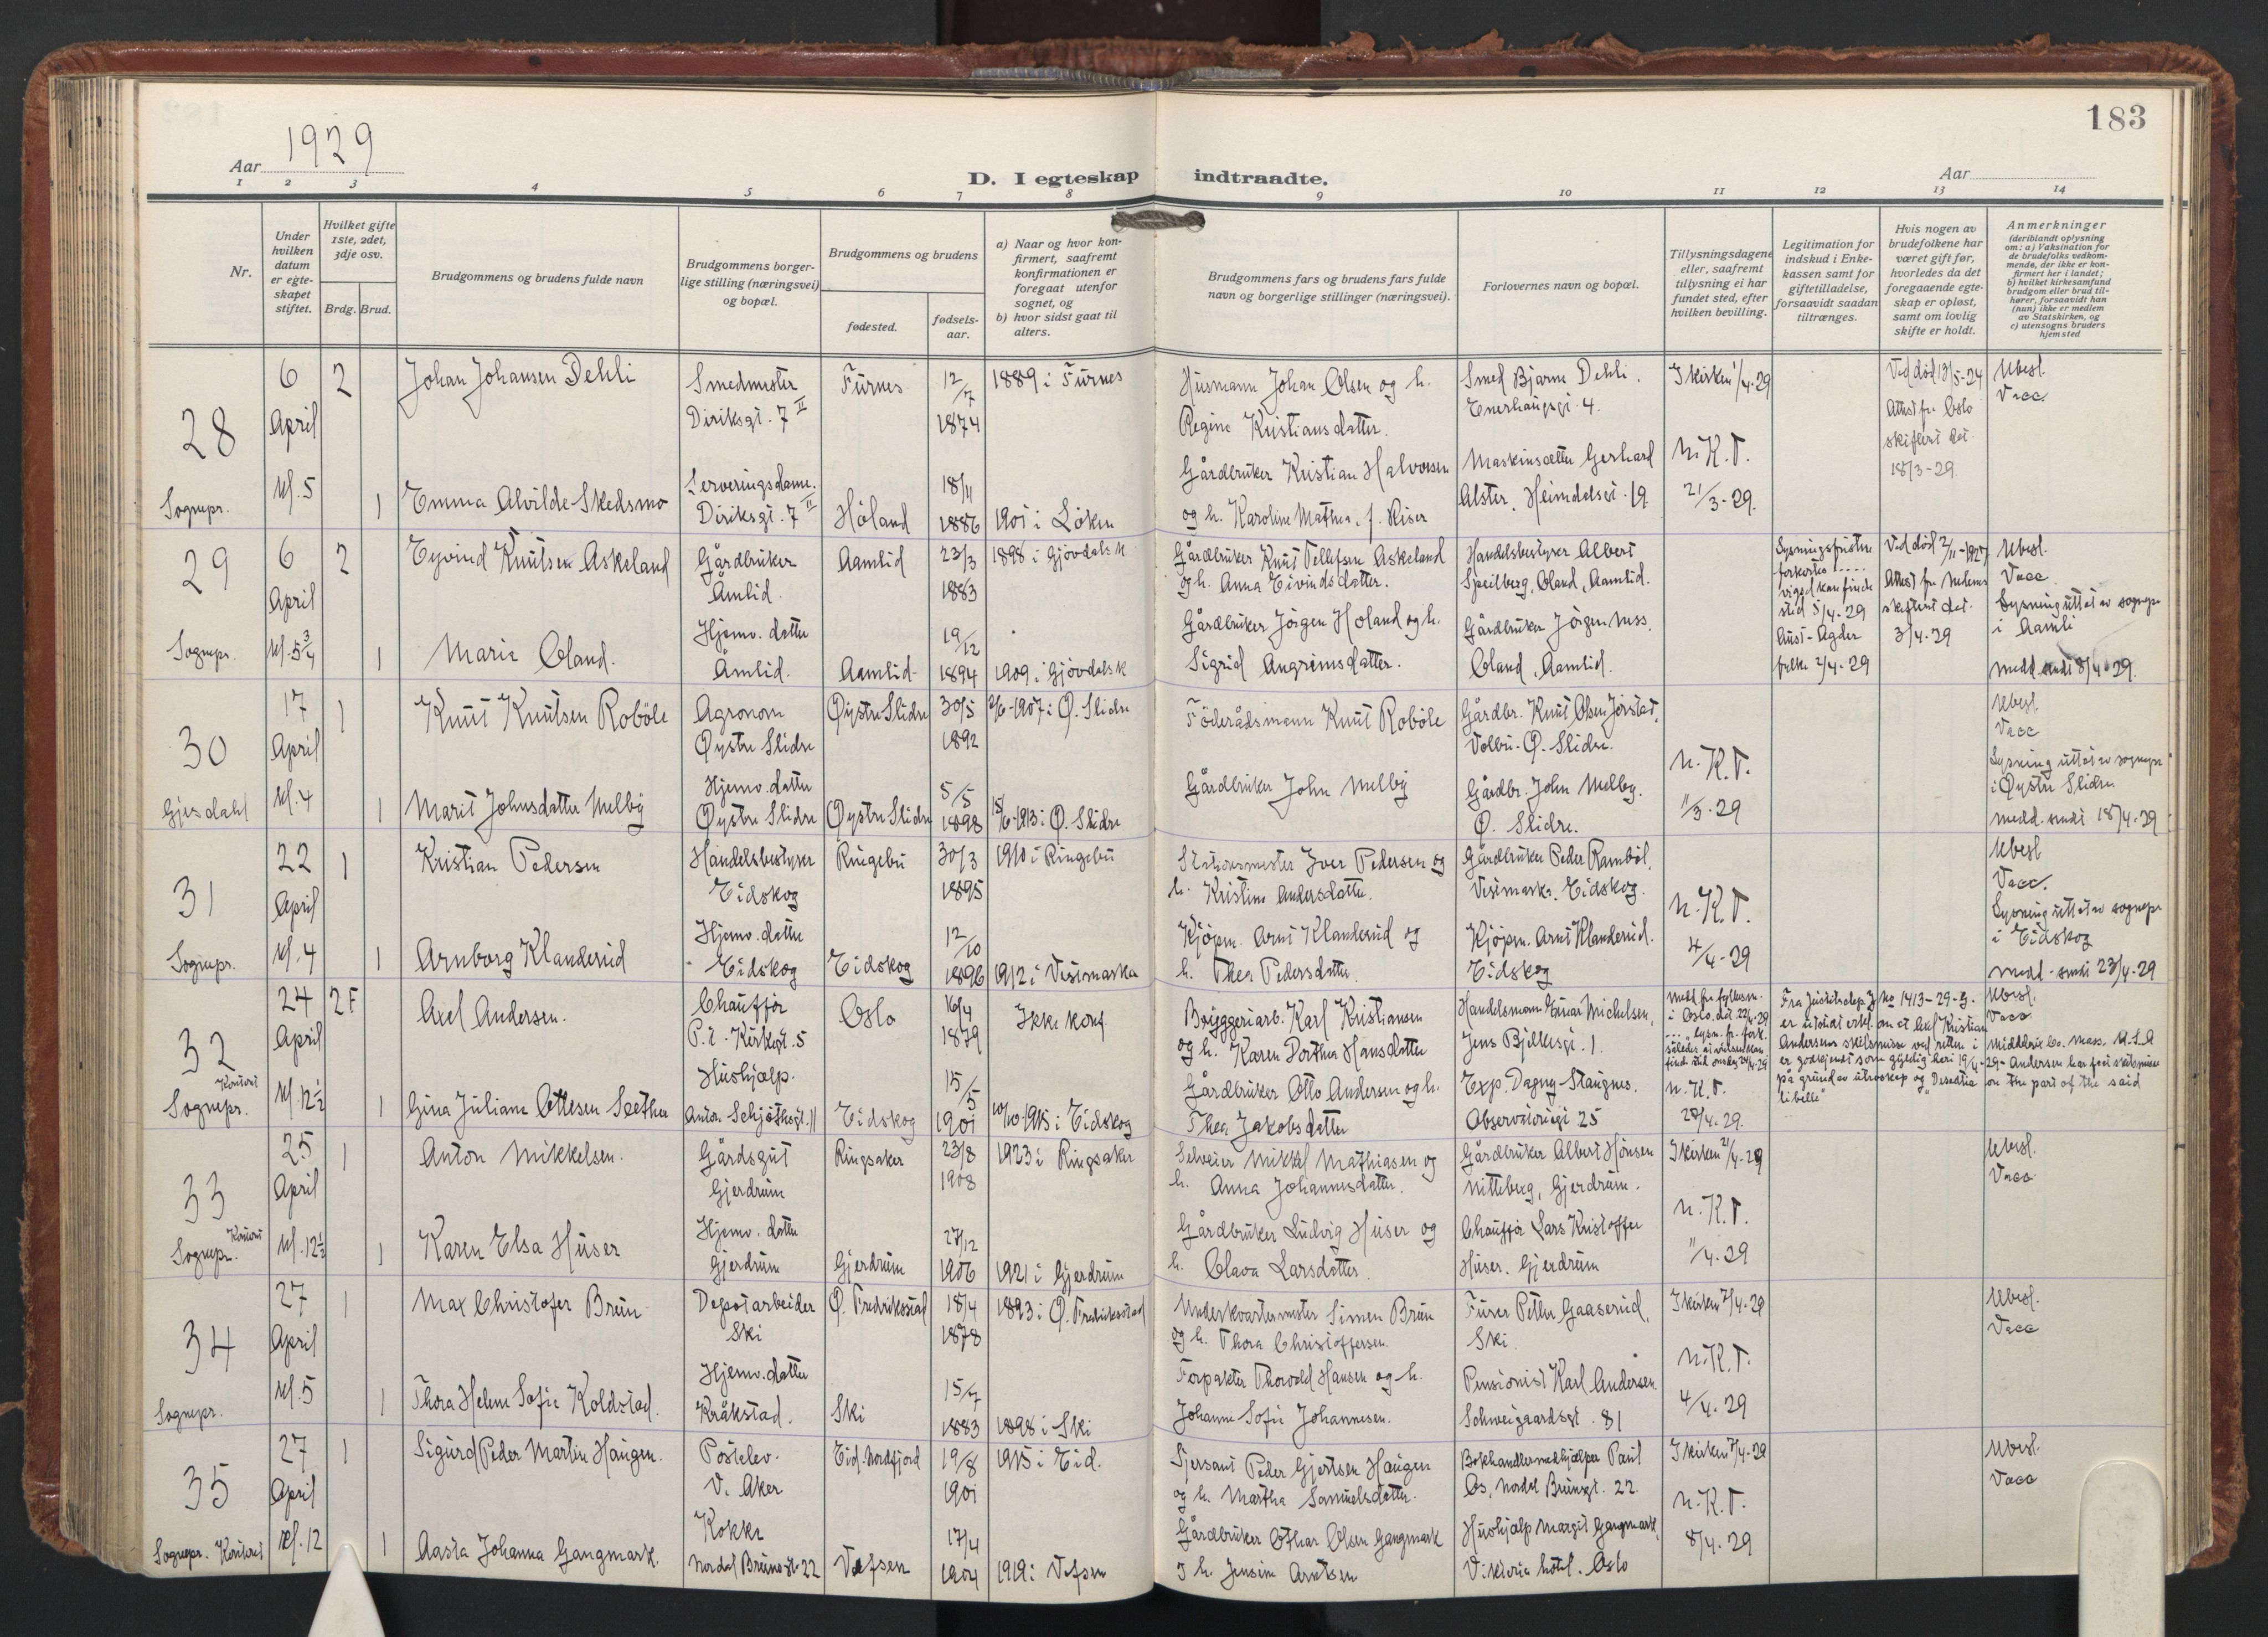 183
Aar 1929
D. I egteskap indtraadte.
Aar
1 2 3 4 5 6 7 8 9 10 11 12 13 14
Nr.
Under hvilken datum er egte-skapet stiftet.
Hvilket gifte 1ste, 2det, 3dje osv.
Brdg. Brud.
Brudgommens og brudens fulde navn
Brudgommens borger-lige stilling (næringsvei) og bopæl.
Brudgommens og brudens
fødested.
fødsels-aar.
a) Naar og hvor kon-firmert, saafremt konfirmationen er foregaat utenfor sognet, og
b) hvor sidst gaat til alters.
Brudgommens fars og brudens fars fulde navn og borgerlige stillinger (næringsvei).
Forlovernes navn og bopæl.
Tillysningsdagene eller, saafremt tillysning ei har fundet sted, efter hvilken bevilling.
Legitimation for indskud i Enke-kassen samt for giftetilladelse, forsaavidt saadan tiltrænges.
Hvis nogen av brudefolkene har været gift før, hvorledes da det foregaaende egte-skap er opløst, samt om lovlig skifte er holdt.
Anmerkninger (deriblandt oplysning om: a) Vaksination for de brudefolks vedkom-mende, der ikke er kon-firmert her i landet; b) hvilket kirkesamfund brudgom eller brud til-hører, forsaavidt han (hun) ikke er medlem av Statskirken, og c) utensogns bruders hjemsted
28
6 April Kl. 5
Sognepr.
2
Johan Johansen Dehli
Smedmester Diriksgt. 7 II
Furnes
12/7 1874
1889 i Furnes
Husmann Johan Olsen og h. Regine Kristiansdatter.
Smed Bjarne Dehli. Enerhaugsgt. 4.
I kirken 1/4-29
Ved død 13/5-24 Attest fra Oslo skifteret dat. 18/3-29.
Ubesl. Vacc
1
Emma Alvilde Skedsmo
Serveringsdame. Diriksgt. 7 II
Høland
18/11 1886
1901 i Løken
Gårdbruker Kristian Halvorsen og h. Karoline Mathea, f. Riser
Maskinsetter Gerhard Alster, Heimdalsgt. 19
N.K.T. 21/3-29.
29
6 April Kl. 5 3/4
Sognepr.
2
Eyvind Knutsen Askeland
Gårdbruker Åmlid.
Aamlid
23/3 1883
1898 i Gjøvdal k
Gårdbruker Knut Tellefsen Askeland og h. Anna Eivindsdatter.
Handelsbestyrer Albert Speilberg, Oland, Aamlid.
Lysningsfristen forkortes ..... vigsel kan finde sted 5/4-29 Aust-Agder fylke 2/4-29
Ved død 2/11-1927 Attest fra Nedenes skifteret dat. 3/4-29
Ubesl. Vacc Lysning uttat av sognepr i Aamli medd. sendt 8/4-29.
1
Marie Oland.
Hjemv. datter Åmlid.
Aamlid
19/12 1894
1909 i Gjøvdal k
Gårdbruker Jørgen Holand og h. Sigrid Angrimsdatter.
Gårdbruker Jørgen Ness, Oland, Aamlid.
30
17 April Kl. 4
Gjesdahl
1
Knut Knutsen Robøle
Agronom Øystre Slidre
Øystre Slidre
30/5 1892
2/6-1907 i Ø. Slidre
Føderådsmann Knut Robøle
Gårdbr. Knut Olsen Jørstad, Volbu. Ø. Slidre.
N.K.T. 11/3-29
Ubesl. Vacc Lysning uttat av sognepr i Øystre Slidre. medd. sendt 18/4-29
1
Marit Johnsdatter Melby
Hjemv. datter Øystre Slidre
Øystre Slidre
5/5 1898
15/6-1913 i Ø. Slidre
Gårdbruker John Melby
Gårdbr. John Melby. Ø. Slidre.
31
22 April Kl. 4
Sognepr.
1
Kristian Pedersen
Handelsbestyrer Eidskog
Ringebu
30/3 1895
1910 i Ringebu
Stationsmester Iver Pedersen og h. Kristine Andersdatter.
Gårdbruker Peder Rambøl, Vestmarka. Eidskog.
N.K.T. 4/4-29
Ubesl Vacc. Lysning uttat av sognepr i Eidskog medd. sendt 23/4-29
1
Arnborg Klanderud
Hjemv. datter Eidskog
Eidskog
12/10 1896
1912 i Vestmarka
Kjøpm. Arnt Klanderud og h. Thea Pedersdatter.
Kjøpm. Arnt Klanderud. Eidskog
32
24 April Kl 12 1/2
Sognepr. Kontoret
2F
Axel Andersen.
Chauffør P.t. Kirkegt. 5
Oslo
16/4 1879
Ikke konf.
Bryggeriarb. Karl Kristiansen og h. Karen Dorthea Hansdatter
Handelsmann Einar Michelsen, Jens Bjelkesgt. 1.
Medd fra fylkesm. i Oslo, dat. 22/4-29
Fra Justitsdep. J no 1413-29-g. er utstedt erkl. om at Axel Kristian Andersens skilsmisse ved retten i Middlesex Co. Mass. U.S.A er godkjendt som gyldig heri 19/4-29 - Andersen har fåt skilsmisse på grund av utroskap og "Desertion on the part of the said libelle"
Ubesl. Vacc.
1
Gina Juliane Ottesen Sæther
Hushjælp. Anton Schjøthsgt. 11
Eidskog
15/5 1901
10/10-1915 i Eidskog
Gårdbruker Otto Andersen og h. Thea Jakobsdatter
Exp. Dagny Staugnes. Observatoriegt 25
N.K.T. 20/4-29.
33
25 April Kl. 12 1/2
Sognepr. Kontoret
1
Anton Mikkelsen.
Gårdsgut Gjerdrum
Ringsaker
23/8 1908
1923 i Ringsaker
Selveier Mikkel Mathiasen og h. Anna Johannesdatter.
Gårdbruker Albert Hønsen Nitteberg, Gjerdrum.
I kirken 21/4-29
Ubesl. Vacc
1
Karen Elsa Huser
Hjemv. datter Gjerdrum
Gjerdrum
27/12 1906
1921 i Gjerdrum
Gårdbruker Ludvig Huser og h. Olava Larsdatter.
Chauffør Lars Kristoffer Huser. Gjerdrum
N.K.T. 11/4-29
34
27 April Kl. 5
Sognepr.
1
Max Christofer Brun
Depotarbeider Ski
Ø. Fredrikstad
18/4 1878
1893 i Ø. Fredrikstad
Underkvartermester Simen Brun og h. Thora Christoffersen.
Furer Petter Gaaserud, Ski.
I kirken 7/4-29
Ubesl. Vacc
1
Thora Helene Sofie Koldstad.
Hjemv. datter Kråkstad.
Ski
15/7 1883
1898 i Ski
Forpakter Thorvald Hansen og h. Johanne Sofie Johannesen.
Pensionist Karl Andersen Schweigaardsgt. 81
N.K.T. 4/4-29
35
27 April Kl. 12
Sognepr. Kontoret
1
Sigurd Peder Martin Haugen.
Postelev. V. Aker
Eid. Nordfjord
19/8 1901
1915 i Eid.
Sjersant Peder Gjertsen Haugen og h. Martha Samuelsdatter.
Bokhandlermedhjælper Paul Os, Nordal Brunsgt. 22
I kirken 7/4-29
Ubesl. Vacc
1
Aasta Johanna Gangmark.
Kokke Nordal Brunsgt. 22
Vefsen
17/4 1904
1919 i Vefsen
Gårdbruker Othar Olsen Gangmark og h. Jensine Arntsen
Hushjælp Margit Gangmark, Viktoria hotel. Oslo
N.K.T. 8/4-29